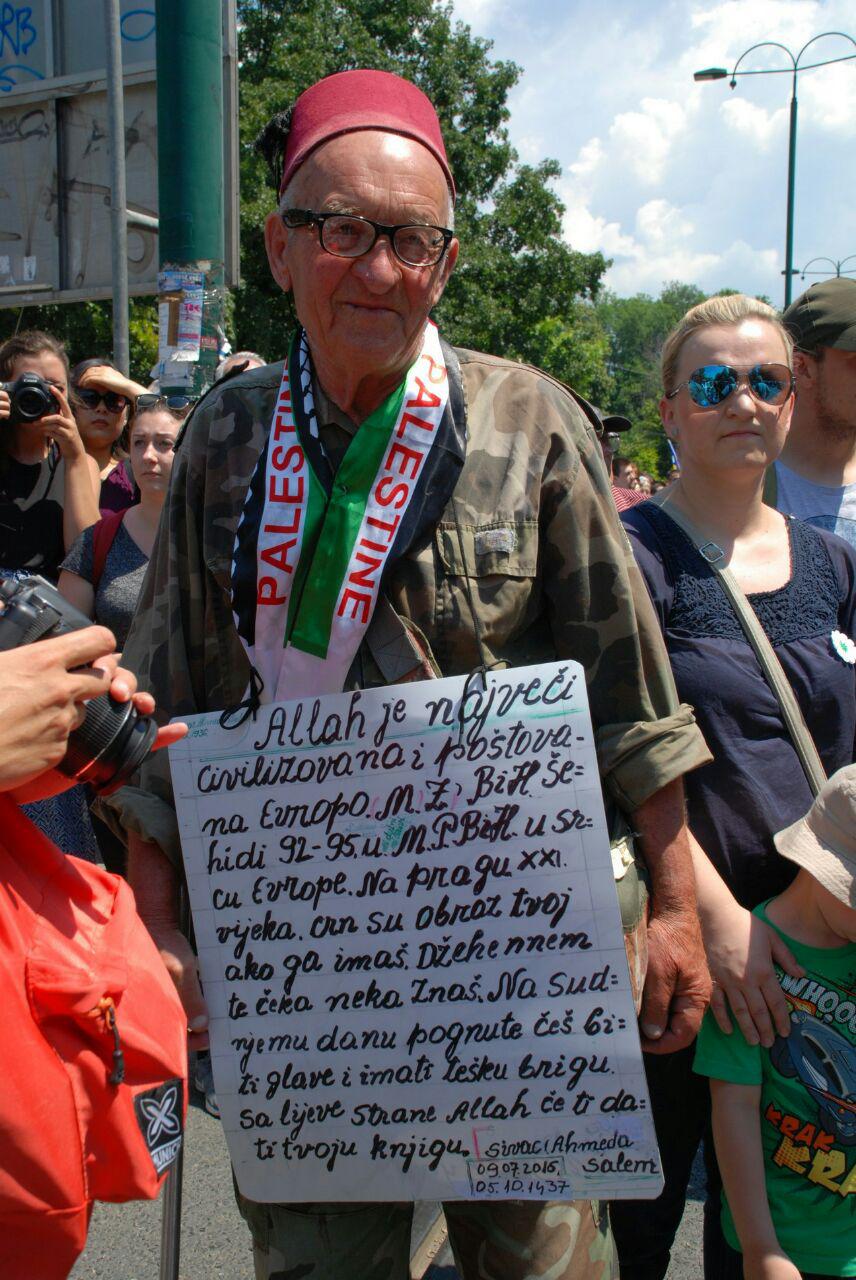 PALESTINE
PALESTINE
Allah je največi
civilizovana i poštova-
na Evropo. M. Z, BiH. Še=
hidi 92-95. u M.P.BiH. u sr=
cu Evrope. Na pragu XXI.
vijeka. crn su obraz tvoj
ako ga imaš. Džehennem
te čeka neka znaš. Na Sud=
njemu danu pognute češ bi=
ti glave i imati tešku brigu.
Sa lijeve strane Allah će ti da=
ti tvoju knjigu.
Sivac (Ahmeda
09.07.2016.
Salem
05.10.1437
WHOOO
KRAK
KRA